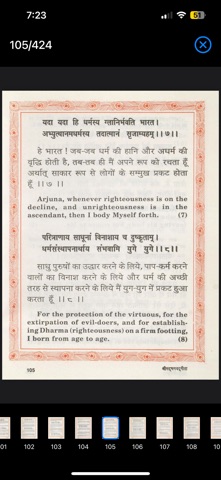 7:23
51
105/424
यदा यदा हि धर्मस्य ग्लानिर्भवति भारत।
अभ्युत्थानमधर्मस्य तदात्मानं सृजाम्यहम्।।७।।
हे भारत! जब-जब धर्म की हानि और अधर्म की
वृद्धि होती है, तब-तब ही मैं अपने रूप को रचता हूँ
अर्थात् साकार रूप से लोगों के सम्मुख प्रकट होता
हूँ ।।७।।
Arjuna, whenever righteousness is on the
decline, and unrighteousness is in the
ascendant, then I body Myself forth. (7)
परित्राणाय साधूनां विनाशाय च दुष्कृताम्।
धर्मसंस्थापनार्थाय संभवामि युगे युगे।।८।।
साधु पुरुषों का उद्धार करने के लिये, पाप-कर्म करने
वालों का विनाश करने के लिये और धर्म की अच्छी
तरह से स्थापना करने के लिये मैं युग-युग में प्रकट हुआ
करता हूँ ।।८।।
For the protection of the virtuous, for the
extirpation of evil-doers, and for establish-
ing Dharma (righteousness) on a firm footing,
I born from age to age. (8)
103
श्रीमद्भगवद्गीता
01 102 103 104 105 106 107 108 10